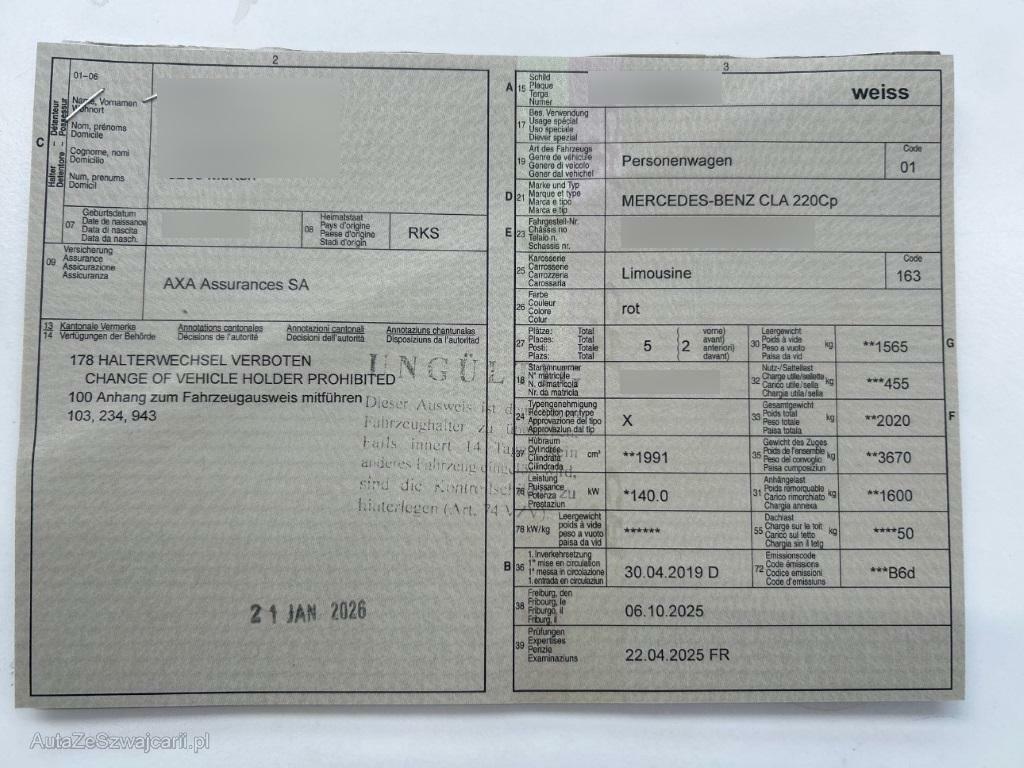 2
01–06
Name, Vornamen
Wohnort
Nom, prénoms
Domicile
Cognome, nomi
Domicilio
Num, prenums
Domicil
C
Halter – Détenteur
Detentore – Possessur
07
Geburtsdatum
Date de naissance
Data di nascita
Data da nasch.
08
Heimatstaat
Pays d'origine
Paese d'origine
Stadi d'origin
RKS
09
Versicherung
Assurance
Assicurazione
Assicuranza
AXA Assurances SA
13 Kantonale Vermerke Annotations cantonales Annotazioni cantonali Annotaziuns chantunalas
14 Verfügungen der Behörde Décisions de l'autorité Decisioni dell'autorità Disposiziuns da l'autoritad
178 HALTERWECHSEL VERBOTEN
CHANGE OF VEHICLE HOLDER PROHIBITED
100 Anhang zum Fahrzeugausweis mitführen
103, 234, 943
UNGÜL
Dieser Ausweis ist
Fahrzeughalter zu
Falls innert 14
anderes Fahrzeug
sind die
hinterlegen (Art. 74
21 JAN. 2026
3
A 15
Schild
Plaque
Targa
Numer
weiss
17
Bes. Verwendung
Usage spécial
Uso speciale
Diever spezial
19
Art des Fahrzeugs
Genre de véhicule
Genere di veicolo
Gener dal vehichel
Personenwagen
Code
01
D 21
Marke und Typ
Marque et type
Marca e tipo
Marca e tip
MERCEDES-BENZ CLA 220Cp
E 23
Fahrgestell-Nr.
Châssis no
Telaio n.
Schassis nr.
25
Karosserie
Carrosserie
Carrozzeria
Carossaria
Limousine
Code
163
26
Farbe
Couleur
Colore
Colur
rot
27
Plätze: Total
Places: Total
Posti: Totale
Plazs: Total
5
vorne)
avant)
anteriori)
davant)
2
30
Leergewicht
Poids à vide
Peso a vuoto
Paisa da vid
kg
**1565
G
18
Stammnummer
N° matricule
N. di matricola
Nr. da matricla
32
Nutz-/Sattellast
Charge utile/sellette
Carico utile/sella
Chargia utila/sella
kg
***455
24
Typengenehmigung
Réception par type
Approvazione del tipo
Approvaziun dal tip
X
33
Gesamtgewicht
Poids total
Peso totale
Paisa totala
kg
**2020
F
37
Hubraum
Cylindrée
Cilindrata
Cilindrada
cm³
**1991
35
Gewicht des Zuges
Poids de l'ensemble
Peso del convoglio
Paisa cumposiziun
kg
**3670
76
Leistung
Puissance
Potenza
Prestaziun
kW
*140.0
31
Anhängelast
Poids remorquable
Carico rimorchiato
Chargia annexa
kg
**1600
78 kW/kg
Leergewicht
poids à vide
peso a vuoto
paisa da vid
******
55
Dachlast
Charge sur le toit
Carico sul tetto
Chargia sin il tetg
kg
****50
B 36
1. Inverkehrsetzung
1re mise en circulation
1a messa in circolazione
1. entrada en circulaziun
30.04.2019 D
72
Emissionscode
Code émissions
Codice emissioni
Code d'emissiuns
***B6d
38
Freiburg, den
Fribourg, le
Friburgo, il
Friburg, il
06.10.2025
39
Prüfungen
Expertises
Perizie
Examinaziuns
22.04.2025 FR
AutaZeSzwajcarii.pl